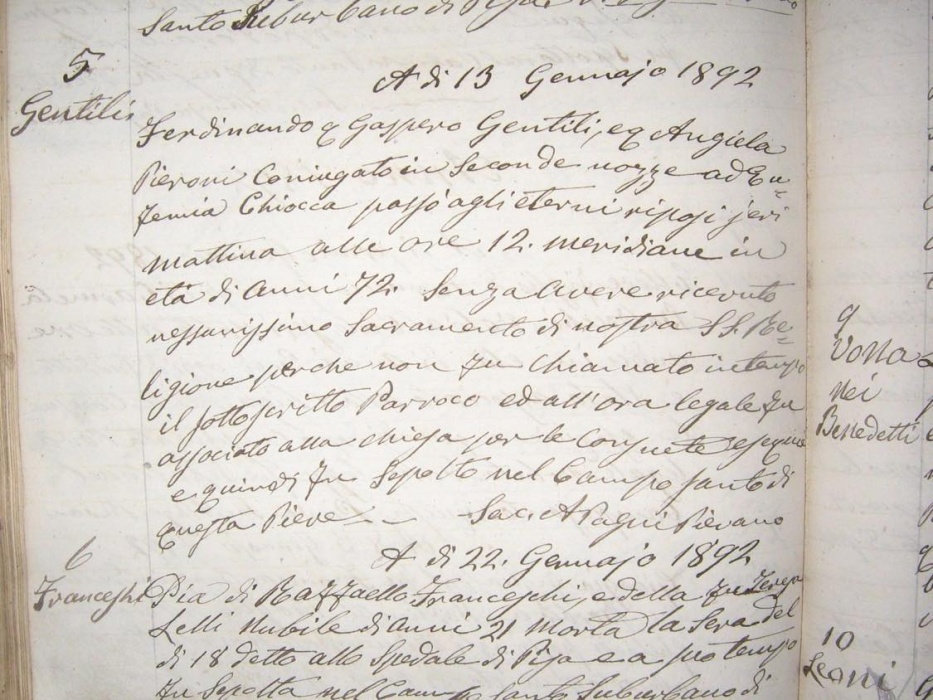 Santo Suburbano di Pisa
5
A di 13 Gennajo 1892
Gentili
Ferdinando q Gaspero Gentili, e q Angiola
Pieroni Coniugato in seconde nozze ad Eu=
femia Chiocca passò agli eterni riposi jeri
mattina alle ore 12. meridiane in
età di anni 72. senza avere ricevuto
nessunissimo Sacramento di nostra S.S. Re=
ligione perche non fu chiamato in tempo
il sottoscritto Parroco ed all'ora legale fu
associato alla chiesa per le consuete esequie
e quindi fu sepolto nel Campo santo di
questa Pieve — — Sac. A Pagni Pievano
6
A di 22. Gennajo 1892
Franceschi
Pia di Raffaello Franceschi, e della fu Teresa
Lelli nubile di anni 21 morta la sera del
di 18 detto allo Spedale di Pisa e a suo tempo
fu sepolta nel Campo Santo Suburbano di
9
nei
Benedetti
10
Leoni